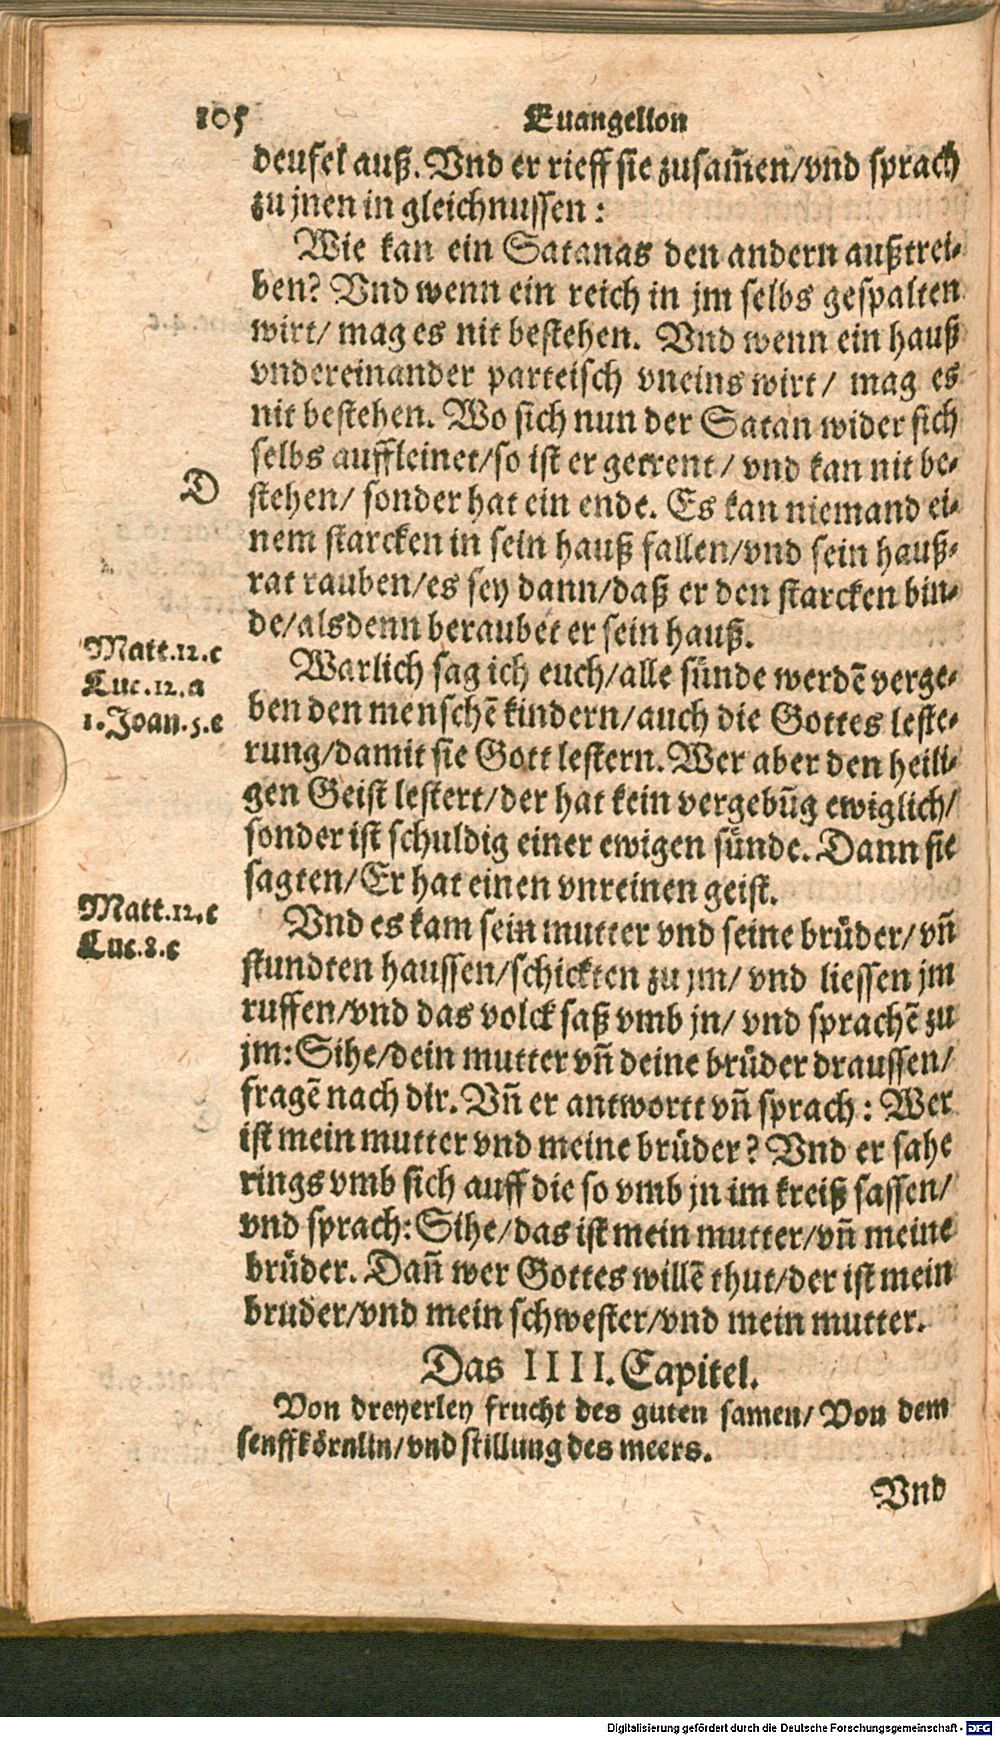 105 Euangelion
deufel auß. Vnd er rieff sie zusam̃en/vnd sprach
zu jnen in gleichnussen:
Wie kan ein Satanas den andern außtrei-
ben? Vnd wenn ein reich in jm selbs gespalten
wirt/ mag es nit bestehen. Vnd wenn ein hauß
vndereinander parteisch vneins wirt/ mag es
nit bestehen. Wo sich nun der Satan wider sich
selbs auffleinet/so ist er getrent/ vnd kan nit be-
D
stehen/ sonder hat ein ende. Es kan niemand ei-
nem starcken in sein hauß fallen/vnd sein hauß-
rat rauben/es sey dann/daß er den starcken bin-
de/alsdenn beraubet er sein hauß.
Matt.12.c
Luc.12.a
1.Joan.5.e
Warlich sag ich euch/alle sünde werdẽ verge-
ben den menschẽ kindern/auch die Gottes leste-
rung/damit sie Gott lestern. Wer aber den heili-
gen Geist lestert/der hat kein vergebũg ewiglich/
sonder ist schuldig einer ewigen sünde. Dann sie
sagten/Er hat einen vnreinen geist.
Matt.12.c
Luc.8.c
Vnd es kam sein mutter vnd seine brüder/ vñ
stundten haussen/schickten zu jm/ vnd liessen jm
ruffen/vnd das volck saß vmb jn/ vnd sprachẽ zu
jm: Sihe/dein mutter vñ deine brüder draussen/
fragẽ nach dir. Vñ er antwortt vñ sprach: Wer
ist mein mutter vnd meine brüder? Vnd er sahe
rings vmb sich auff die so vmb jn im kreiß sassen/
vnd sprach: Sihe/das ist mein mutter/vñ meine
brüder. Dañ wer Gottes willẽ thut/der ist mein
bruder/vnd mein schwester/vnd mein mutter.
Das IIII. Capitel.
Von dreyerley frucht des guten samen/ Von dem
senffkörnlin/vnd stillung des meers.
Vnd
Digitalisierung gefördert durch die Deutsche Forschungsgemeinschaft - DFG